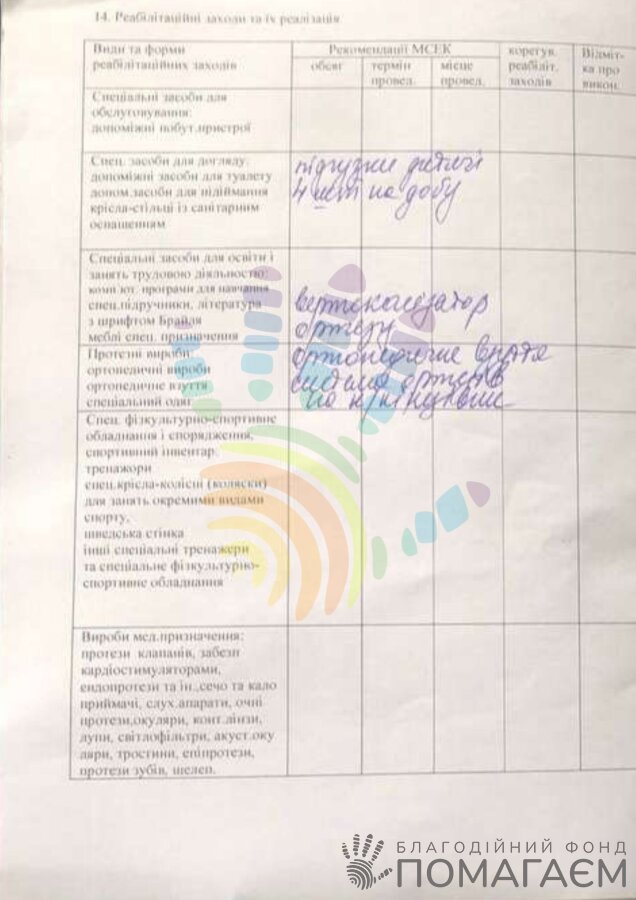 14. Реабілітаційні заходи та їх реалізація
Види та форми реабілітаційних заходів
Рекомендації МСЕК
обсяг
термін провед.
місце провед.
корегув. реабіліт. заходів
Відміт-ка про викон.
Спеціальні засоби для
обслуговування:
допоміжні побут.пристрої
Спец. засоби для догляду:
допоміжні засоби для туалету
допом.засоби для підіймання
крісла-стільці із санітарним
оснащенням
підгузки дитячі
4 шт на добу
Спеціальні засоби для освіти і
занять трудовою діяльністю:
комп'ют. програми для навчання
спец.підручники, література
з шрифтом Брайля
меблі спец. призначення
вертикалізатор
ортези
Протезні вироби:
ортопедичні вироби
ортопедичне взуття
спеціальний одяг
ортопедичне взуття
на
Спец. фізкультурно-спортивне
обладнання і спорядження,
спортивний інвентар
тренажори
спец.крісла-колісні (коляски)
для занять окремими видами
спорту,
шведська стінка
інші спеціальні тренажери
та спеціальне фізкультурно-
спортивне обладнання
Вироби мед.призначення:
протези клапанів, забезп
кардіостимуляторами,
ендопротези та ін.,сечо та кало
приймачі, слух.апарати, очні
протези,окуляри, конт.лінзи,
лупи, світлофільтри, акуст.оку
ляри, тростини, епіпротези,
протези зубів, щелеп.
БЛАГОДІЙНИЙ ФОНД
ПОМАГАЄМ